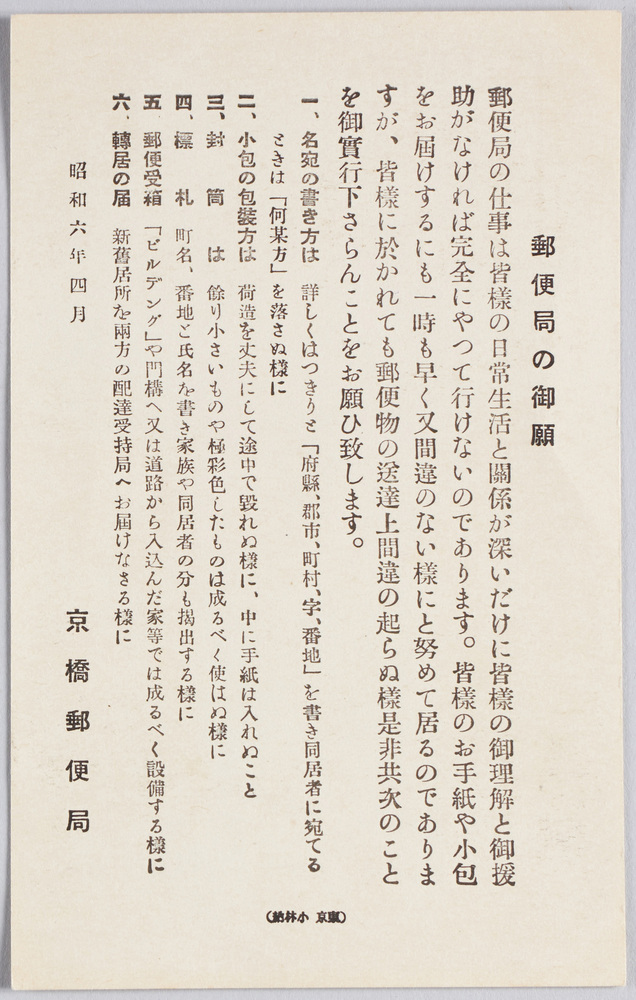 郵便局の御願
郵便局の仕事は皆樣の日常生活と關係が深いだけに皆樣の御理解と御援
助がなければ完全にやつて行けないのであります。皆樣のお手紙や小包
をお屆けするにも一時も早く又間違のない樣にと努めて居るのでありま
すが、皆樣に於かれても郵便物の送達上間違の起らぬ樣是非共次のこと
を御實行下さらんことをお願ひ致します。
一、名宛の書き方は 詳しくはつきりと「府縣、郡市、町村、字、番地」を書き同居者に宛てる
ときは「何某方」を落さぬ樣に
二、小包の包裝方は 荷造を丈夫にして途中で毀れぬ樣に、中に手紙は入れぬこと
三、封筒は 餘り小さいものや極彩色したものは成るべく使はぬ樣に
四、標札 町名、番地と氏名を書き家族や同居者の分も揭出する樣に
五、郵便受箱 「ビルデング」や門構へ又は道路から入込んだ家等では成るべく設備する樣に
六、轉居の屆 新舊居所を兩方の配達受持局へお屆けなさる樣に
昭和六年四月
京橋郵便局
(東京 小林納)